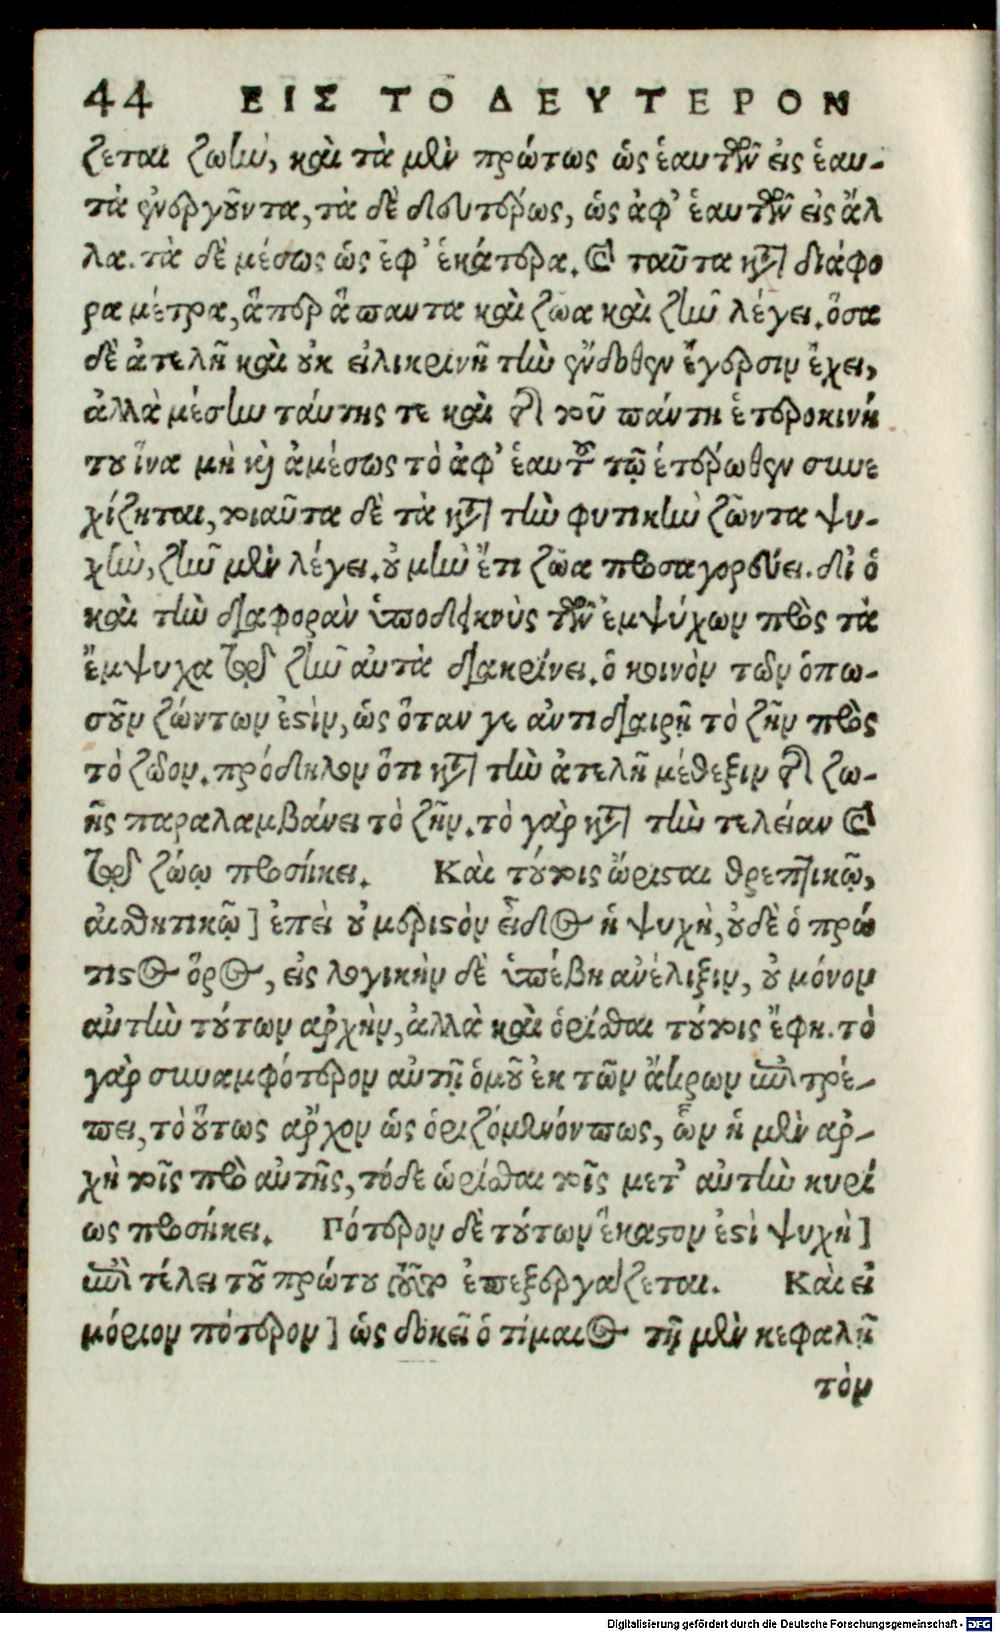 44 ΕΙΣ ΤΟ ΔΕΥΤΕΡΟΝ
ζεται ζωὴν, καὶ τὰ μὲν πρώτως ὡς ἑαυτῶν εἰς ἑαυ-
τὰ ἐνεργοῦντα, τὰ δὲ δευτέρως, ὡς ἀφ’ ἑαυτῶν εἰς ἄλ
λα. τὰ δὲ μέσως ὡς ἐφ’ ἑκάτερα. καὶ ταῦτα κατὰ διάφο
ρα μέτρα, ἅπερ ἅπαντα καὶ ζῶα καὶ ζῆν λέγει. ὅσα
δὲ ἀτελῆ καὶ οὐκ εἰλικρινῆ τὴν ἔνδοθεν ἔγερσιν ἔχει,
ἀλλὰ μέσην ταύτης τε καὶ τῆς τοῦ πάντη ἑτεροκινή
του ἵνα μὴ καὶ ἀμέσως τὸ ἀφ’ ἑαυτοῦ τῷ ἑτέρωθεν συνε
χίζηται, τοιαῦτα δὲ τὰ κατὰ τὴν φυτικὴν ζῶντα ψυ-
χὴν, ζῆν μὲν λέγει. οὐ μὴν ἔτι ζῶα προσαγορεύει. διὸ
καὶ τὴν διαφορὰν ὑποδεικνὺς τῶν ἐμψύχων πρὸς τὰ
ἔμψυχα τῷ ζῆν αὐτὰ διακρίνει. ὃ κοινὸν τῶν ὁπω-
σοῦν ζώντων ἐστὶν, ὡς ὅταν γε ἀντιδιαιρῇ τὸ ζῆν πρὸς
τὸ ζῶον. πρόδηλον ὅτι κατὰ τὴν ἀτελῆ μέθεξιν τῆς ζω-
ῆς παραλαμβάνει τὸ ζῆν. τὸ γὰρ κατὰ τὴν τελείαν καὶ
τῷ ζώῳ προσήκει. Καὶ τούτοις ὥρισται θρεπτικῷ,
αἰσθητικῷ] ἐπεὶ οὐ μεριστὸν εἶδος ἡ ψυχὴ, οὐδὲ ὁ πρώ
τιστος ὅρος, εἰς λογικὴν δὲ ὑπέβη ἀνέλιξιν, οὐ μόνον
αὐτὴν τούτων ἀρχὴν, ἀλλὰ καὶ ὁρίσθαι τούτοις ἔφη. τὸ
γὰρ συναμφότερον αὐτῇ ὁμοῦ ἐκ τῶν ἄκρων ἐπιτρέ-
πει, τὸ οὕτως ἄρχον ὡς ὁριζόμενόν πως, ὧν ἡ μὲν ἀρ-
χὴ τοῖς πρὸ αὐτῆς, τόδε ὡρίσθαι τοῖς μετ’ αὐτὴν κυρί
ως προσήκει. Πότερον δὲ τούτων ἕκαστον ἐστὶ ψυχὴ]
ἐπὶ τέλει τοῦ πρώτου τοῦτο ἐπεξεργάζεται. Καὶ εἰ
μόριον πότερον] ὡς δοκεῖ ὁ τίμαιος τῇ μὲν κεφαλῇ
τὸν
Digitalisierung gefördert durch die Deutsche Forschungsgemeinschaft - DFG